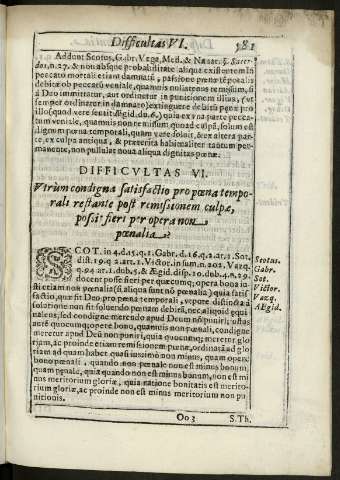 Difficultas VI. 581
Addunt Scotus, Gabr. Vega, Med. & Nauar. §. Sacer-
dos, n. 27. & non absque probabilitate aliqua existentem in
peccato mortali etiam damnatū, passione pœnæ tēporalis
debitæ ob peccatū veniale, quamuis nolit eius remissiōn, si
à Deo immittatur, aut ordinetur in punitionem illius, (vt
semper ordinatur in damnato) extinguere debitū pœnæ pro
illo (quod vere fit vt Ægid. do. 6.) quia ex vna parte pecca-
tum veniale, quamuis non remissum quoad culpā, solum est
dignum pœna temporali, quam vere soluit, & ex altera par-
te, ex culpa antiqua, & præterita habitualiter tantum per-
manente, non pullulat noua aliqua dignitas pœnæ.
DIFFICULTAS VI.
Vtrùm condigna satisfactio pro pœna tempo-
rali restante post remissionem culpæ,
possit fieri per opera non
pœnalia
SCOT. in 4. d. 15. q. 1. Gabr. d. 16. q. 2. ar. 3. Sot.
dist. 19. q. 2. art. 1. Victor. in sum. n. 202. Vazq.
q. 94. ar. 1. dub. 5. & Ægid. disp. 10. dub. 4. n. 29.
docent posse fieri per quæcumq; opera bona iu-
sti etiam non pœnalia (si aliqua sunt nō pœnalia) quia satis-
factio, quæ fit Deo pro pœna temporali, vtpote distincta à
solutione non fit soluendo pœnam debitā, nec aliquid equi-
ualens, sed condigne merendo apud Deum nō puniri; iustus
autē quocumq; opere bono, quamuis non pœnali, condigne
meretur apud Deū non puniri, quia quocumq; meretur glo-
riam, ac proinde etiam remissionem pœnæ, ordinatā ad glo-
riam ad quam habet quasi ius; imò non minus, quàm opere
bono pœnali, quando non pœnale non est minus bonum,
quam pœnale, quia quando non est minus bonum, non est mi
nus meritorium gloriæ, quia ratione bonitatis est merito-
rium gloriæ, ac proinde non est minus meritorium non pu
nitionis.
Scotus.
Gabr.
Sot.
Victor.
Vazq.
AEgid.
Oo 3 S. Th.